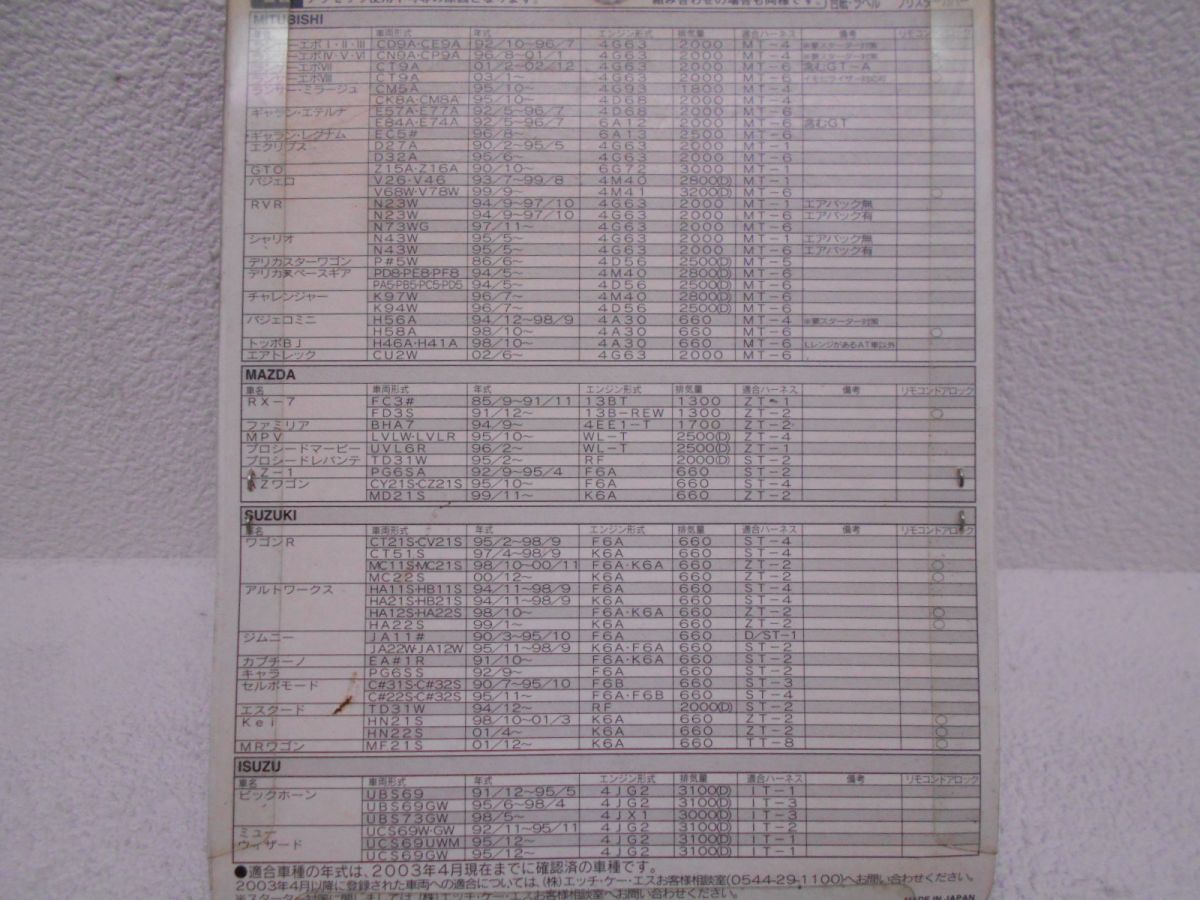 組み合わせの場合も同様です。
MITUBISHI
車両形式 年式 エンジン形式 排気量 適合ハーネス 備考
ランサーエボⅠ・Ⅱ・Ⅲ CD9A・CE9A 92/10~96/7 4G63 2000 MT-4 ※要スターター対策
エボⅣ・Ⅴ・Ⅵ CN9A・CP9A 96/8~01 4G63 2000 MT-4 ※要スターター対策
エボⅦ CT9A 01/2~02/12 4G63 2000 MT-6 含むGT-A
ランサーエボⅧ CT9A 03/1~ 4G63 2000 MT-6 イモビライザー対応可
ランサー・ミラージュ CM5A 95/10~ 4G93 1800 MT-4
CK8A・CM8A 95/10~ 4D68 2000 MT-4
ギャラン・エテルナ E57A・E77A 92/5~96/7 4D68 2000 MT-6
E84A・E74A 92/5~96/7 6A12 2000 MT-6 含むGT
ギャラン・レグナム EC5# 96/8~ 6A13 2500 MT-6
エクリプス D27A 90/2~95/5 4G63 2000 MT-1
D32A 95/6~ 4G63 2000 MT-6
GTO Z15A・Z16A 90/10~ 6G72 3000 MT-1
パジェロ V26・V46 93/7~99/8 4M40 2800(D) MT-1
V68W・V78W 99/9~ 4M41 3200(D) MT-6 ○
RVR N23W 94/9~97/10 4G63 2000 MT-1 エアバック無
N23W 94/9~97/10 4G63 2000 MT-6 エアバック有
N73WG 97/11~ 4G63 2000 MT-6
シャリオ N43W 95/5~ 4G63 2000 MT-1 エアバック無
N43W 95/5~ 4G63 2000 MT-6 エアバック有
デリカスターワゴン P#5W 86/6~ 4D56 2500(D) MT-5
デリカスペースギア PD8・PE8・PF8 94/5~ 4M40 2800(D) MT-6
PA5・PB5・PC5・PD5 94/5~ 4D56 2500(D) MT-6
チャレンジャー K97W 96/7~ 4M40 2800(D) MT-6
K94W 96/7~ 4D56 2500(D) MT-6
パジェロミニ H56A 94/12~98/9 4A30 660 MT-4 ※要スターター対策
H58A 98/10~ 4A30 660 MT-6 ○
トッポBJ H46A・H41A 98/10~ 4A30 660 MT-6 LレンジがあるAT車以外
エアトレック CU2W 02/6~ 4G63 2000 MT-6
MAZDA
車名 車両形式 年式 エンジン形式 排気量 適合ハーネス 備考 リモコンドアロック
RX-7 FC3# 85/9~91/11 13BT 1300 ZT-1
FD3S 91/12~ 13B-REW 1300 ZT-2 ○
ファミリア BHA7 94/9~ 4EE1-T 1700 ZT-2
MPV LVLW・LVLR 95/10~ WL-T 2500(D) ZT-4
プロシードマービー UVL6R 96/2~ WL-T 2500(D) ZT-1
プロシードレバンテ TD31W 95/2~ RF 2000(D) ST-2
AZ-1 PG6SA 92/9~95/4 F6A 660 ST-2
AZワゴン CY21S・CZ21S 95/10~ F6A 660 ST-4
MD21S 99/11~ K6A 660 ZT-2
SUZUKI
車名 車両形式 年式 エンジン形式 排気量 適合ハーネス 備考 リモコンドアロック
ワゴンR CT21S・CV21S 95/2~98/9 F6A 660 ST-4
CT51S 97/4~98/9 K6A 660 ST-4
MC11S・MC21S 98/10~00/11 F6A・K6A 660 ZT-2 ○
MC22S 00/12~ K6A 660 ZT-2 ○
アルトワークス HA11S・HB11S 94/11~98/9 F6A 660 ST-4
HA21S・HB21S 94/11~98/9 K6A 660 ST-4
HA12S・HA22S 98/10~ F6A・K6A 660 ZT-2 ○
HA22S 99/1~ K6A 660 ZT-2 ○
ジムニー JA11# 90/3~95/10 F6A 660 D/ST-1
JA22W・JA12W 95/11~98/9 K6A・F6A 660 ST-2
カプチーノ EA#1R 91/10~ F6A・K6A 660 ST-2
キャラ PG6SS 92/9~ F6A 660 ST-2
セルボモード C#31S・C#32S 90/7~95/10 F6B 660 ST-3
C#22S・C#32S 95/11~ F6A・F6B 660 ST-4
エスクード TD31W 94/12~ RF 2000(D) ST-2
Kei HN21S 98/10~01/3 K6A 660 ZT-2 ○
HN22S 01/4~ K6A 660 ZT-2 ○
MRワゴン MF21S 01/12~ K6A 660 TT-8 ○
ISUZU
車名 車両形式 年式 エンジン形式 排気量 適合ハーネス 備考 リモコンドアロック
ビックホーン UBS69 91/12~95/5 4JG2 3100(D) IT-1
UBS69GW 95/6~98/4 4JG2 3100(D) IT-3
UBS73GW 98/5~ 4JX1 3000(D) IT-3
ミュー UCS69W・GW 92/11~95/11 4JG2 3100(D) IT-2
ウィザード UCS69UWM 95/12~ 4JG2 3100(D) IT-1
UCS69GW 95/12~ 4JG2 3100(D) IT-1
●適合車種の年式は、2003年4月現在までに確認済の車種です。
2003年4月以降に登録された車両への適合については、(株)エッチ・ケー・エスお客様相談室(0544-29-1100)へお問い合わせください。
※スターター対策に関しましては(株)エッチ・ケー・エスお客様相談室へお問い合わせください。
MADE IN JAPAN